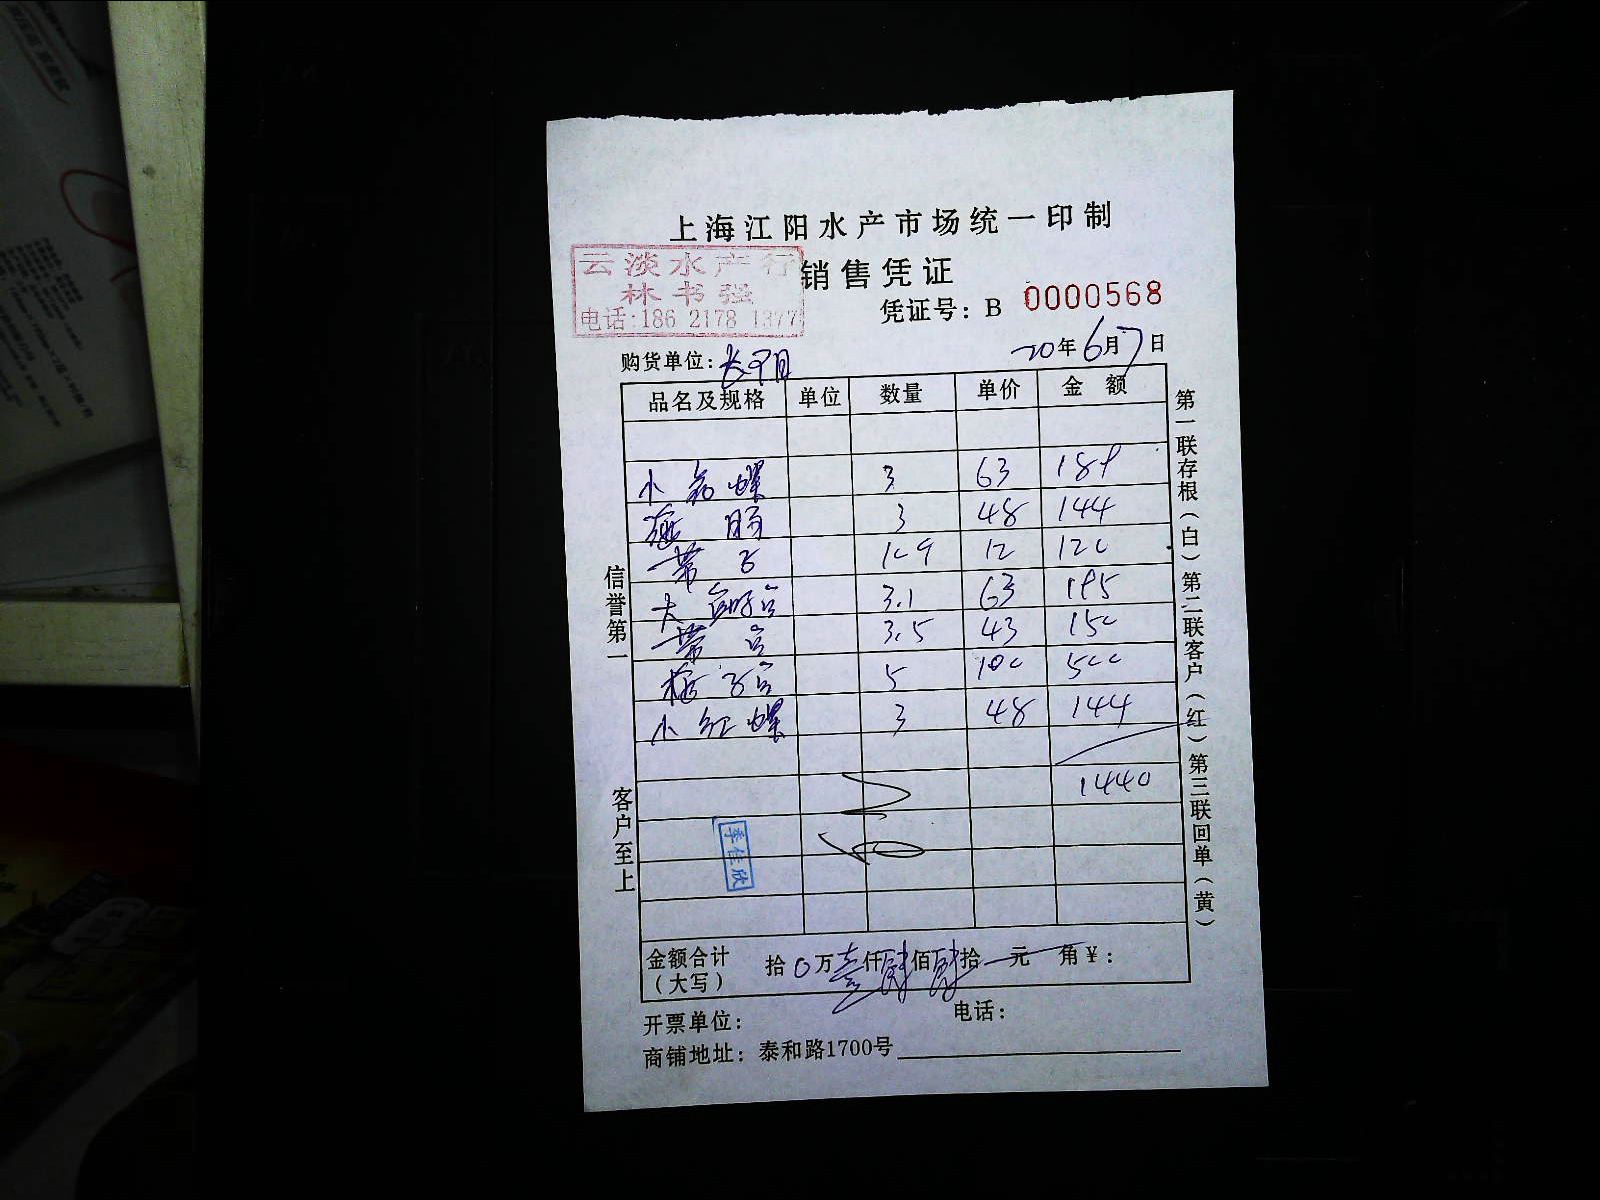 上海江阳水产市场统一印制
云淡水产行
林书强
电话:186 2178 1377
销售凭证
凭证号：B 0000568
购货单位:
20年6月7日
品名及规格 单位 数量 单价 金额
小 螺 3 63 189
海肠 3 48 144
带子 10.9 12 120
大 3.1 63 195
带 3.5 43 150
5 100 500
小红螺 3 48 144
1440
季佳欣
金额合计（大写） 拾0万壹仟肆佰肆拾元角¥：
开票单位：
电话：
商铺地址：泰和路1700号
信誉第一
客户至上
第一联存根（白）第二联客户（红）第三联回单（黄）